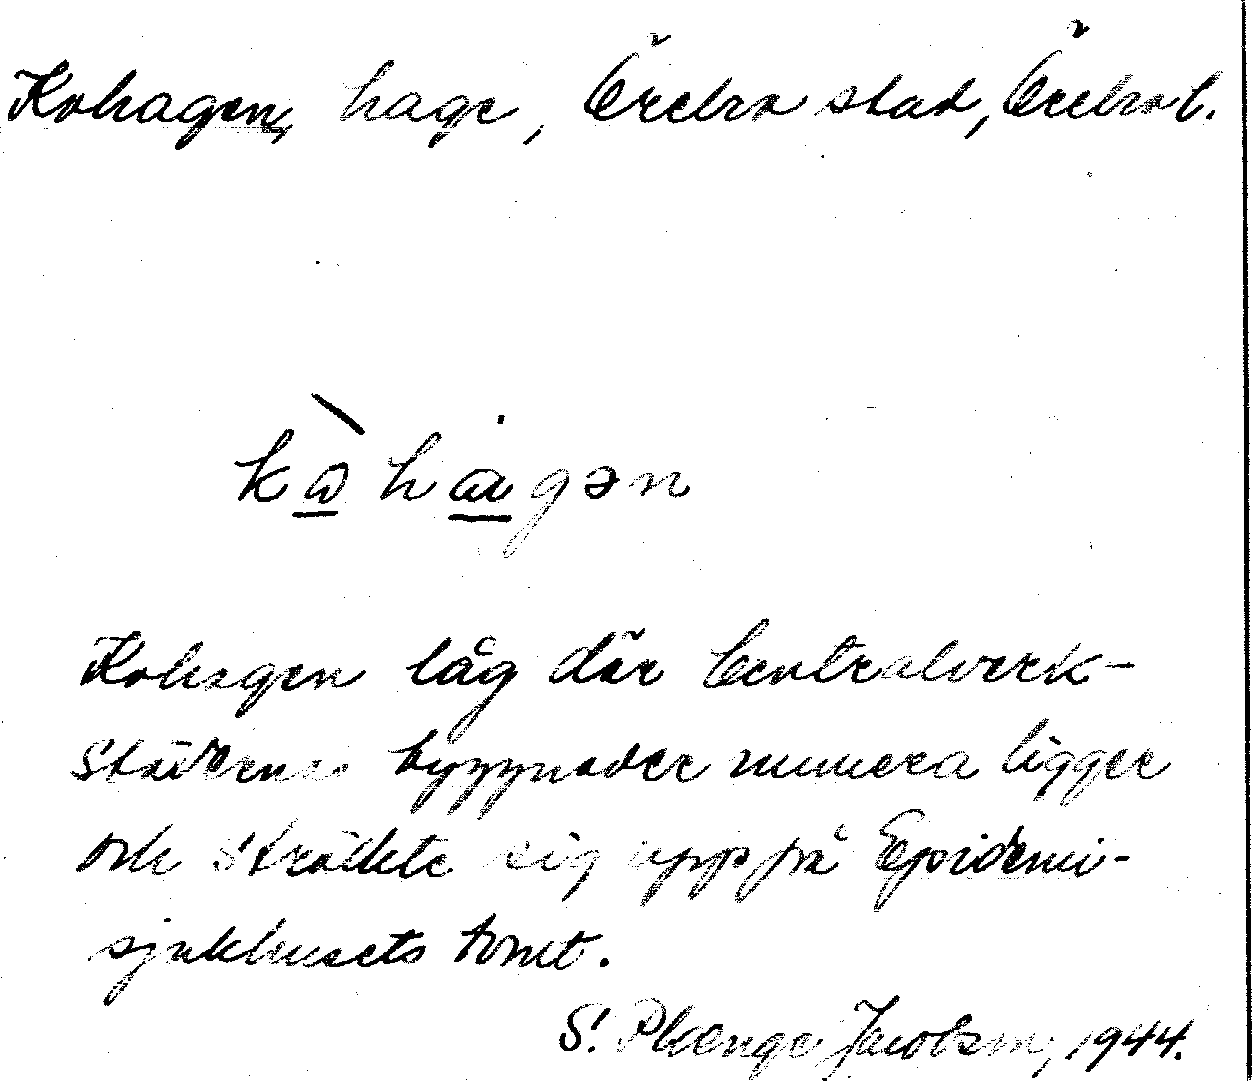 Kohagen, hage, Örebro stad, Örebro l.
kòhagən
Kohagen låg där Centralverk-
städernas byggnader numera ligger
och sträckte sig upp på Epidemi-
sjukhusets tomt.
S. Plænge Jacobson, 1944.